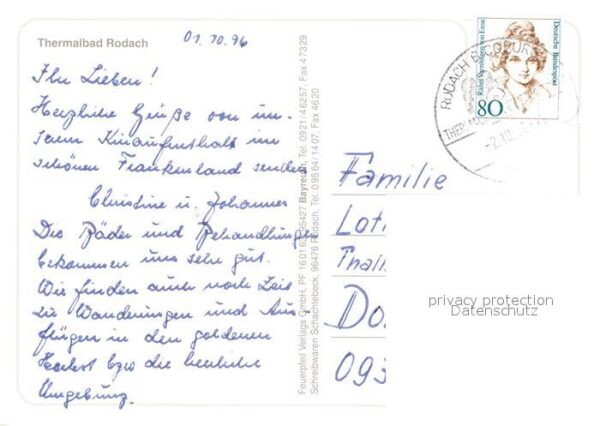 Thermalbad Rodach
01.10.96
Ihr Lieben!
Herzliche Grüße von un-
serm Kuraufenthalt im
schönen Frankenland senden
Christine u. Johannes
Die Bäder und Behandlungen
bekommen uns sehr gut.
Wir finden auch noch Zeit
zu Wanderungen und Aus-
flügen in den goldenen
Herbst bzw die herrliche
Umgebung.
Feuerpfeil Verlags GmbH, PF 16 01 63, 95427 Bayreuth, Tel. 0921/46257, Fax 47329
Schreibwaren Schachtebeck, 96476 Rodach, Tel. 09564/1407, Fax 4620
Deutsche Bundespost
Rahel Varnhagen von Ense
80
RODACH B COBURG
THERM
-2.10.
Familie
Lot
Do
093
privacy protection
Datenschutz